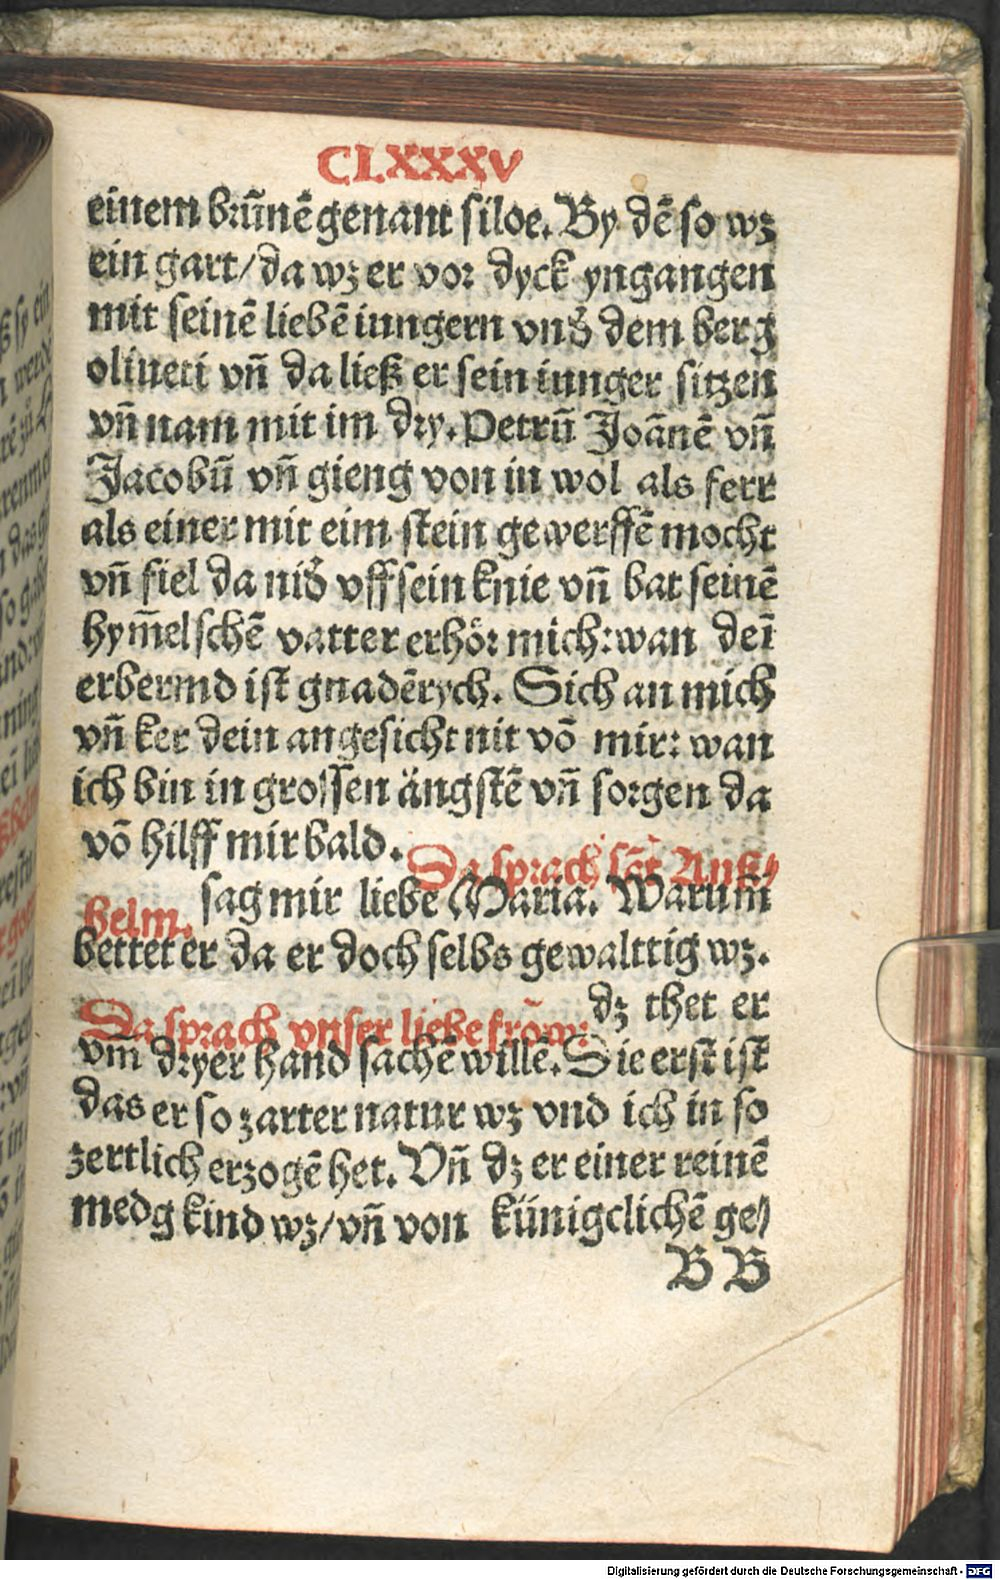 CLXXXV
einem brūnē genant siloe. By dē so wz
ein gart/da wz er vor dyck yngangen
mit seinē liebē iungern vnd̕ dem berg
oliueti vn̄ da ließ er sein iunger sitzen
vn̄ nam mit im dry. Petrū Joānē vn̄
Jacobū vn̄ gieng von in wol als ferr
als einer mit eim stein gewerffē mocht
vn̄ fiel da nid̕ vff sein knie vn̄ bat seinē
hym̄elschē vatter erhör mich: wan deī
erbermd ist gnadērych. Sich an mich
vn̄ ker dein angesicht nit vō mir: wan
ich bin in grossen ängstē vn̄ sorgen da
vō hilff mir bald. Da sprach sāt Anß⸗
helm. sag mir liebe Maria. Warum̄
bettet er da er doch selbs gewalttig wz.
Da sprach vnser liebe frōw: dz thet er
vm̄ dryer hand sachē willē. Die erst ist
das er so zarter natur wz vnd ich in so
zertlich erzogē het. Vn̄ dz er einer reinē
medg kind wz/vn̄ von künigclichē ge⸗
B B
Digitalisierung gefördert durch die Deutsche Forschungsgemeinschaft - DFG